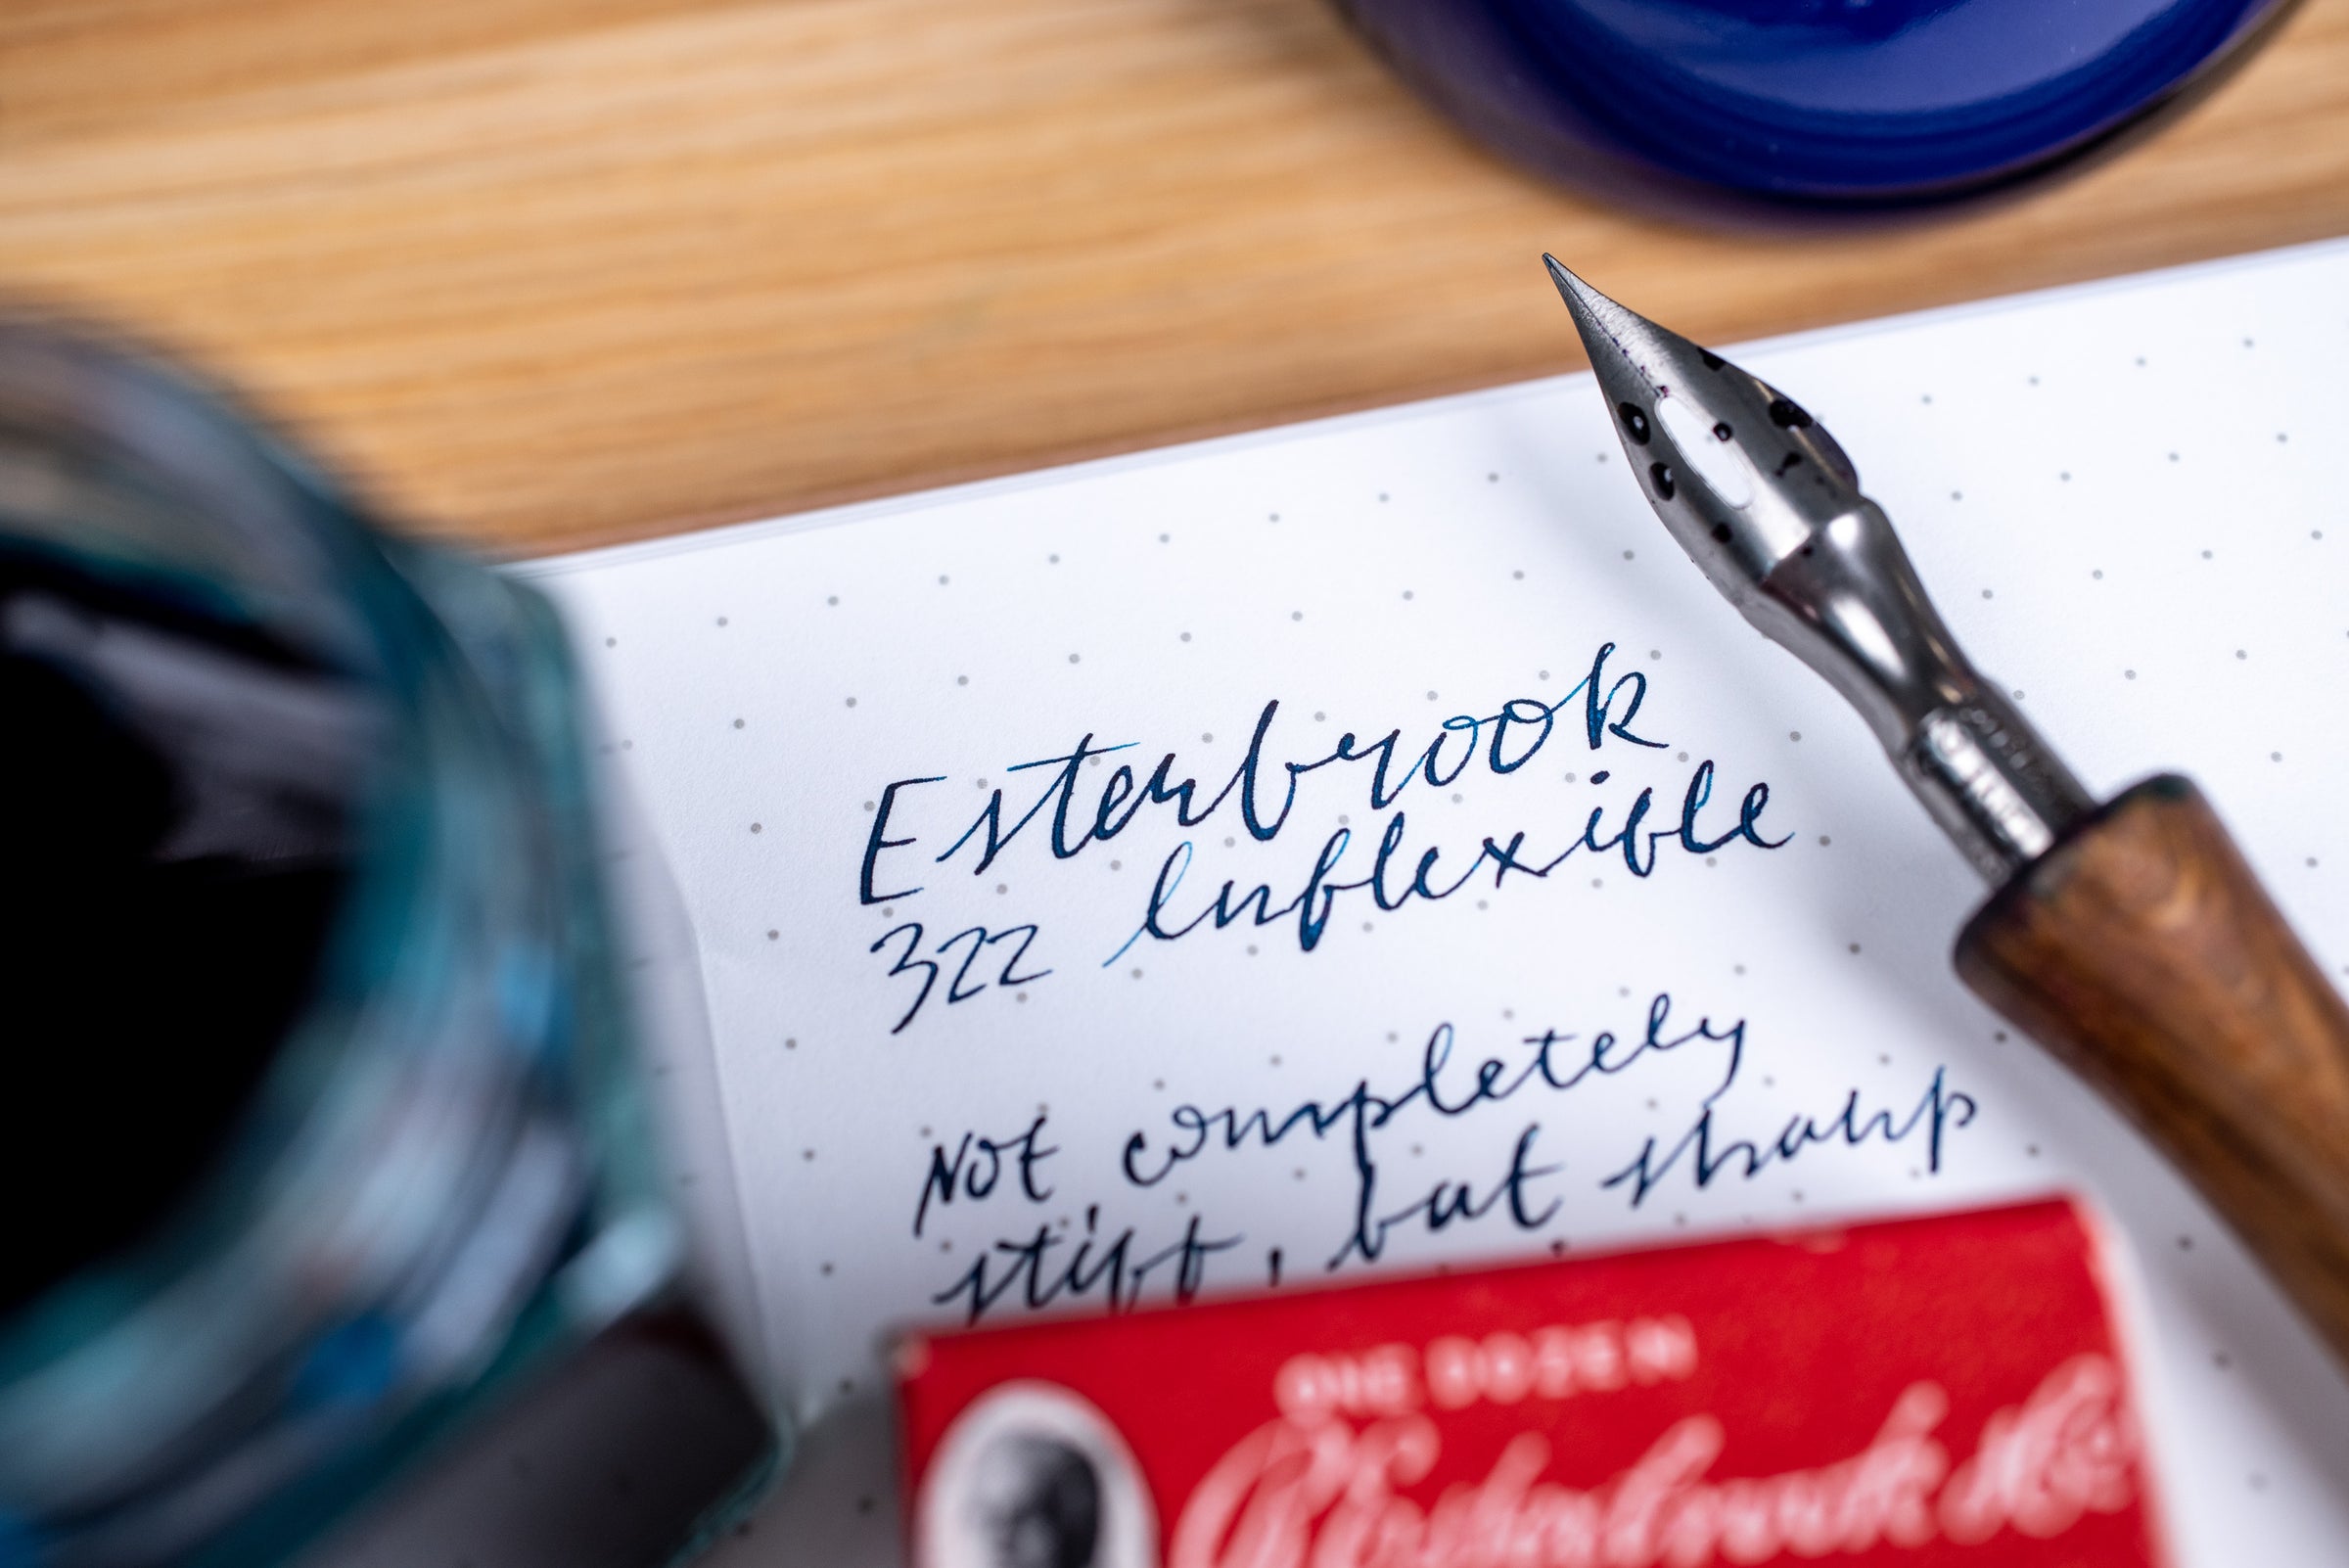 Esterbrook
322 Inflexible
Not completely
stiff, but sharp
ONE DOZEN
Esterbrook &Co